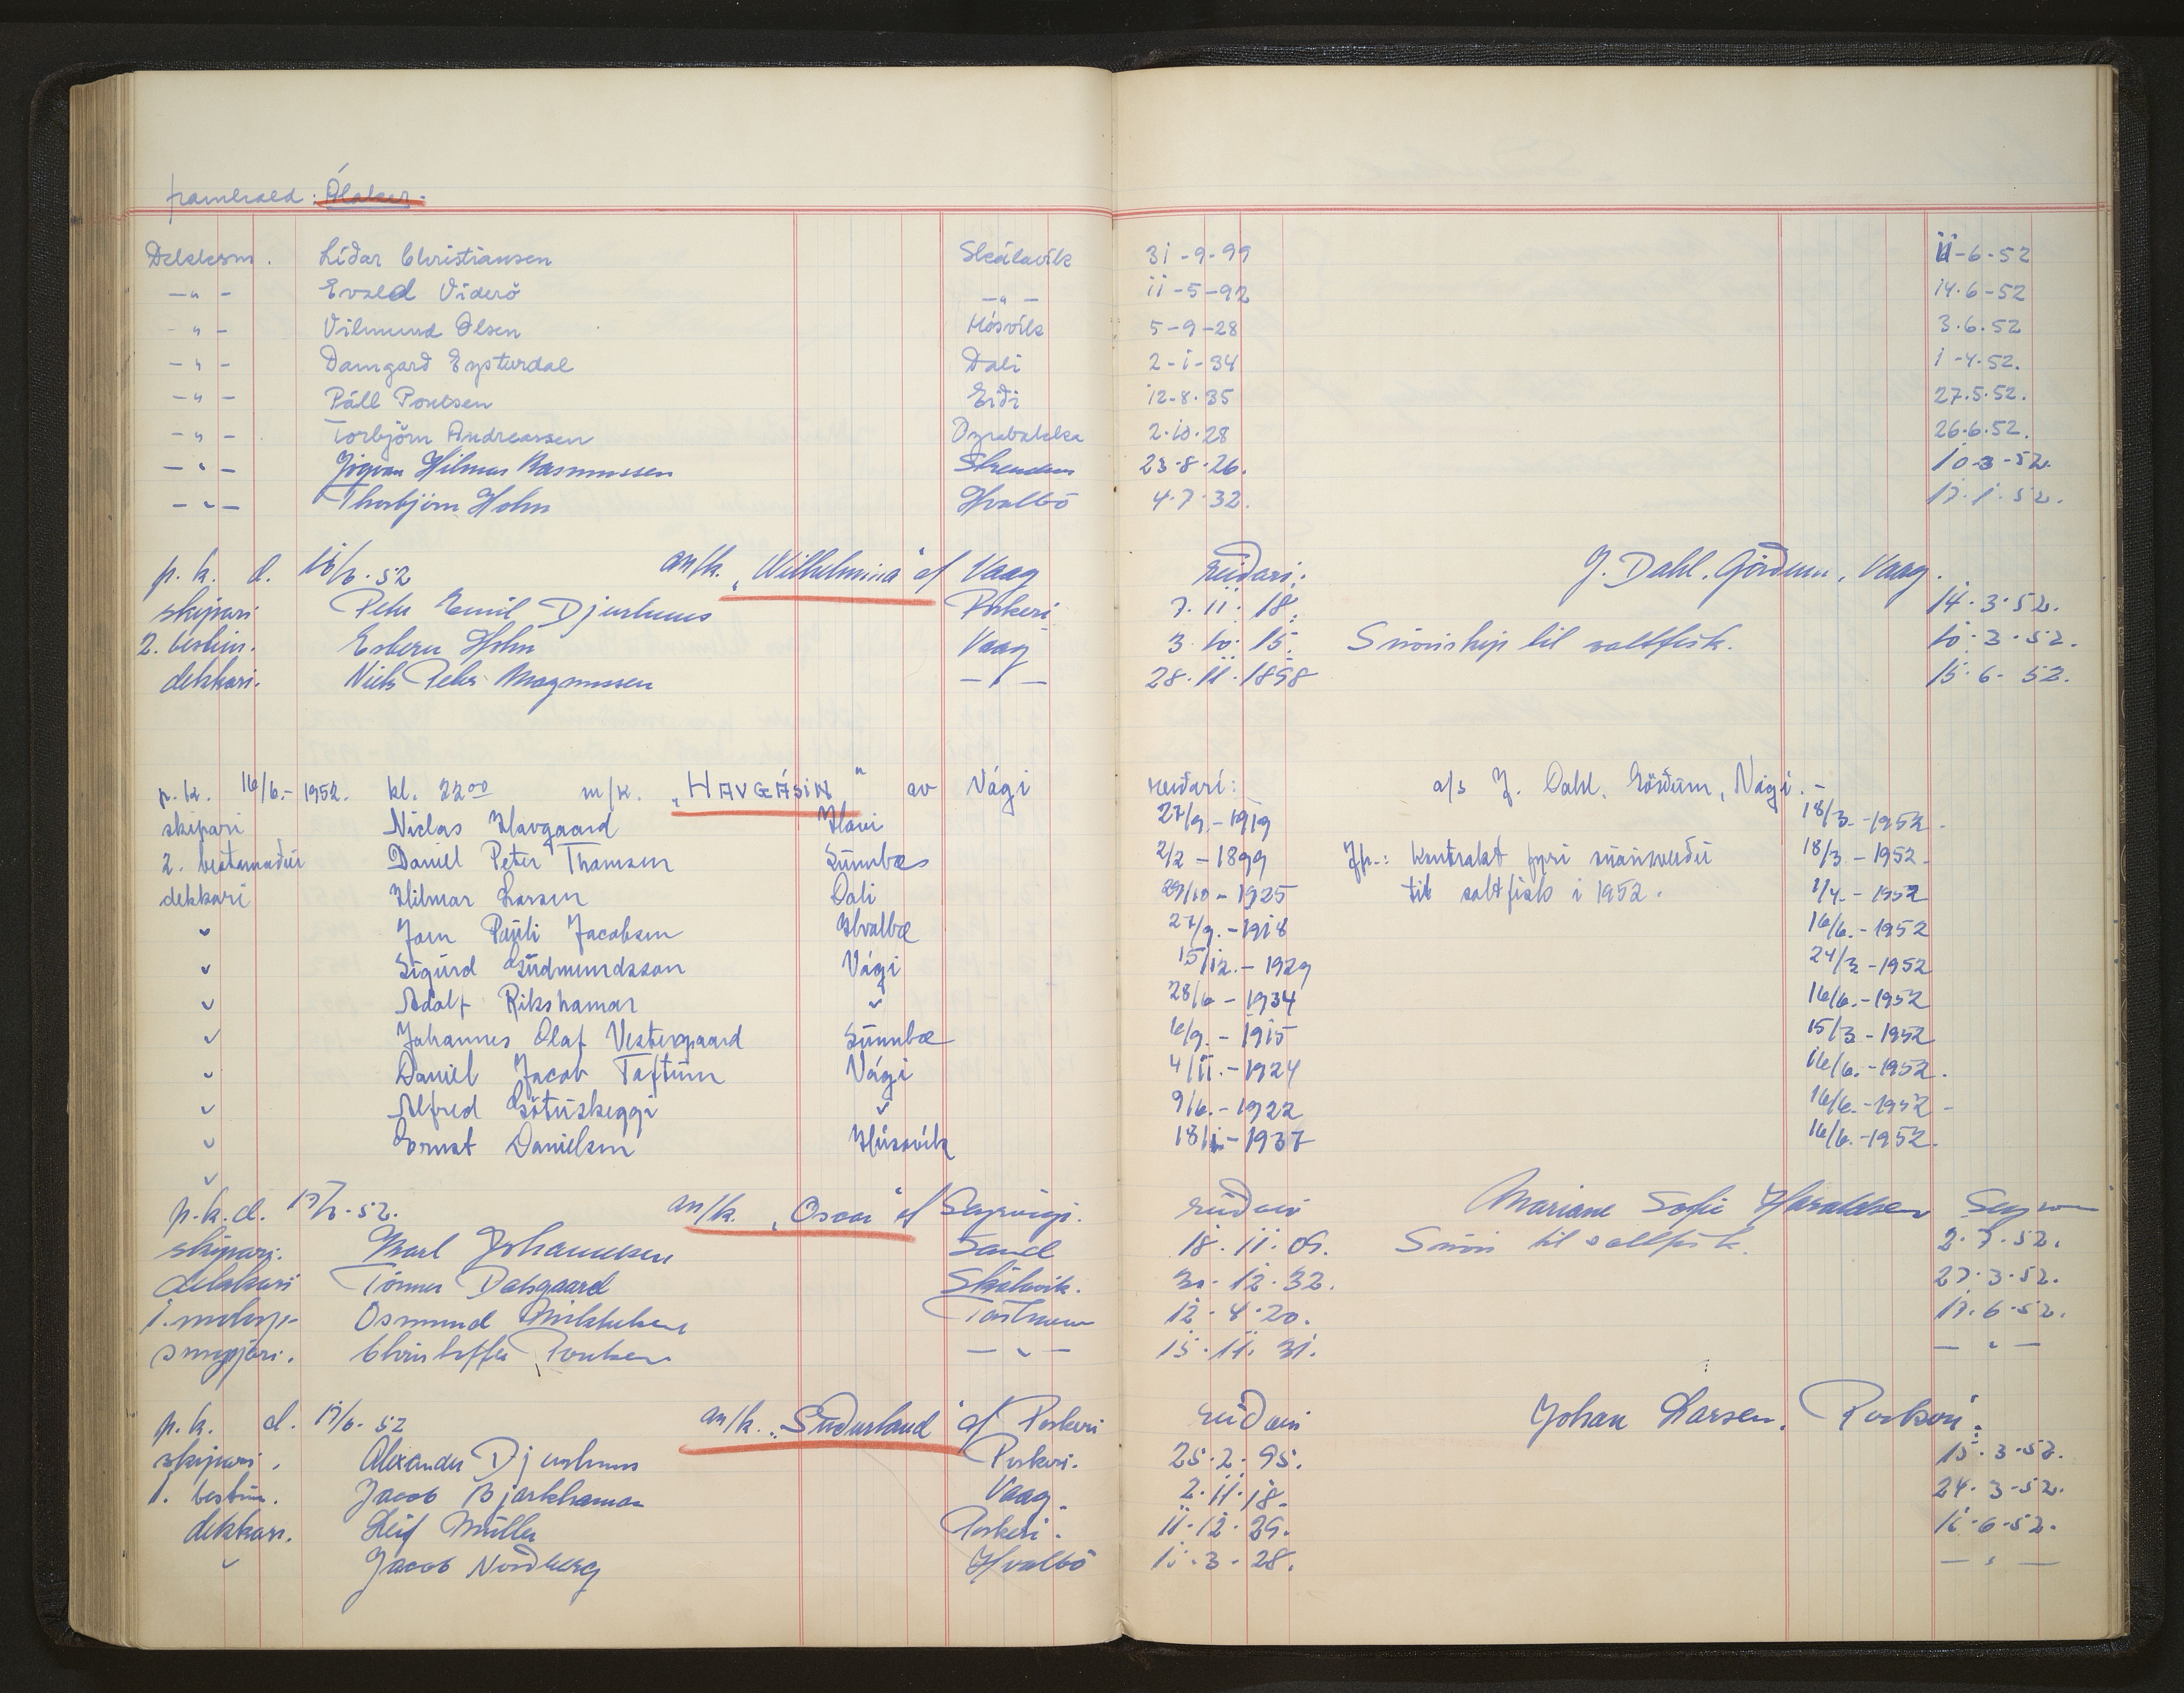 framhald: Ólaker.
Dekksm. Líðar Christiansen Skálavík 31-9-99 11-6-52
-"- Evald Viderö -"- 11-5-92 14.6-52
-"- Vilmund Olsen Hósvík 5-9-28 3.6.52
-"- Damgard Eysturdal Dali 2-1-34 1-4.52.
-"- Páll Poulsen Eiði 12-8-35 27.5.52.
-"- Torbjörn Andreassen 2.10.28 26.6.52.
-"- Jógvan Hilmar Rasmussen 23.8.26. 10-3-52.
-"- Thorbjörn Hohn Hvalbö 4.7.32. 17.1.52.
p.k. d. 16/6.52 m/k. "Wilhelmina" af Vaag reiðari: J. Dahl, Görðum, Vaag.
skipari Peter Emil Djurhuus Porkeri 7.11.18. 14.3.52.
2. bestm. Esbern Hohn Vaag 3.10.15. Snónskip til saltfisk. 10.3.52.
dekkari. Niels Peter Magnussen -"- 28.11.1898 15.6.52.
p.k. 16/6.- 1952. kl. 22⁰⁰ m/k. "HAVGÁSIN" av Vági reiðari: a/s J. Dahl, Görðum, Vági.-
skipari Niclas Havgaard Hovi 27/9.-1919 18/3.-1952.
2. bestamaður Daniel Peter Thomsen Sumbæ 2/2-1899 Jfr.: kontrakt fyri snónveiðu 18/3.-1952
dekkari Hilmar Larsen Dali 29/10-1925 til saltfisk i 1952. 1/4.-1952
" Jorn Pauli Jacobsen Hvalbæ 27/9.-1918 16/6.-1952
" Sigurd Gudmundsson Vági 15/12.-1929 24/3-1952
" Adolf Rikshamar " 28/6-1934 16/6.-1952
" Johannes Olaf Vestergaard Sumbæ 6/9.-1915 15/3-1952
" Daniel Jacob Toftum Vági 4/11.-1924 16/6.-1952.
" Alfred Götuskeggi " 9/6.-1922 16/6.-1952-
" Ernst Danielsen Húsavík 18/1-1937 16/6.-1952.
"
p.k.d. 17/6.52. m/k. "Oscar" af Sørvági. reiðari Mariane Sofie Haraldsen
skipari. Karl Johannesen Sand 18.11.09. Snón til saltfisk. 2.7.52.
dekkari Tórmur Dalsgaard Skálavík. 30.12.32. 27.3.52.
1. motorp. Osmund Mikkelsen 12.4.20. 17.6.52.
Christoffer Poulsen -"- 15.11.31. -"-
p.k. d. 17/6.52 m/k. "Suðurland" af Porkeri reiðari Johan Larsen, Porkeri.
skipari. Alexander Djurhuus Porkeri. 25.2.95. 15.3.52.
1. bestm. Jacob Bjarkhamar Vaag. 2.11.18. 24.3-52.
dekkari. Leif Müller Porkeri. 11.12.29. 16-6-52.
" Jacob Nordberg Hvalbö 15.3-28. -"-